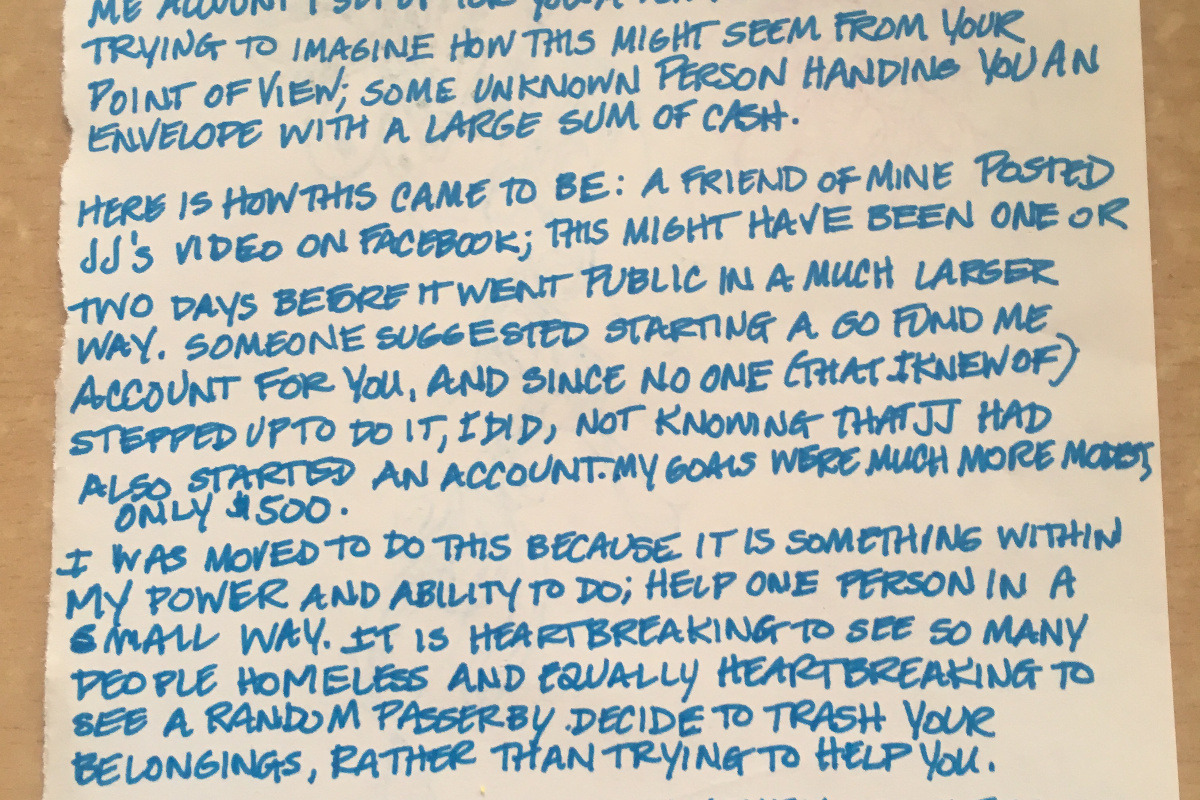 ME ACCOUNT I SET UP FOR YOU.
TRYING TO IMAGINE HOW THIS MIGHT SEEM FROM YOUR
POINT OF VIEW; SOME UNKNOWN PERSON HANDING YOU AN
ENVELOPE WITH A LARGE SUM OF CASH.
HERE IS HOW THIS CAME TO BE: A FRIEND OF MINE POSTED
JJ'S VIDEO ON FACEBOOK; THIS MIGHT HAVE BEEN ONE OR
TWO DAYS BEFORE IT WENT PUBLIC IN A MUCH LARGER
WAY. SOMEONE SUGGESTED STARTING A GO FUND ME
ACCOUNT FOR YOU, AND SINCE NO ONE (THAT I KNEW OF)
STEPPED UP TO DO IT, I DID, NOT KNOWING THAT JJ HAD
ALSO STARTED AN ACCOUNT. MY GOALS WERE MUCH MORE MODEST,
ONLY $500.
I WAS MOVED TO DO THIS BECAUSE IT IS SOMETHING WITHIN
MY POWER AND ABILITY TO DO; HELP ONE PERSON IN A
SMALL WAY. IT IS HEARTBREAKING TO SEE SO MANY
PEOPLE HOMELESS AND EQUALLY HEARTBREAKING TO
SEE A RANDOM PASSERBY DECIDE TO TRASH YOUR
BELONGINGS, RATHER THAN TRYING TO HELP YOU.